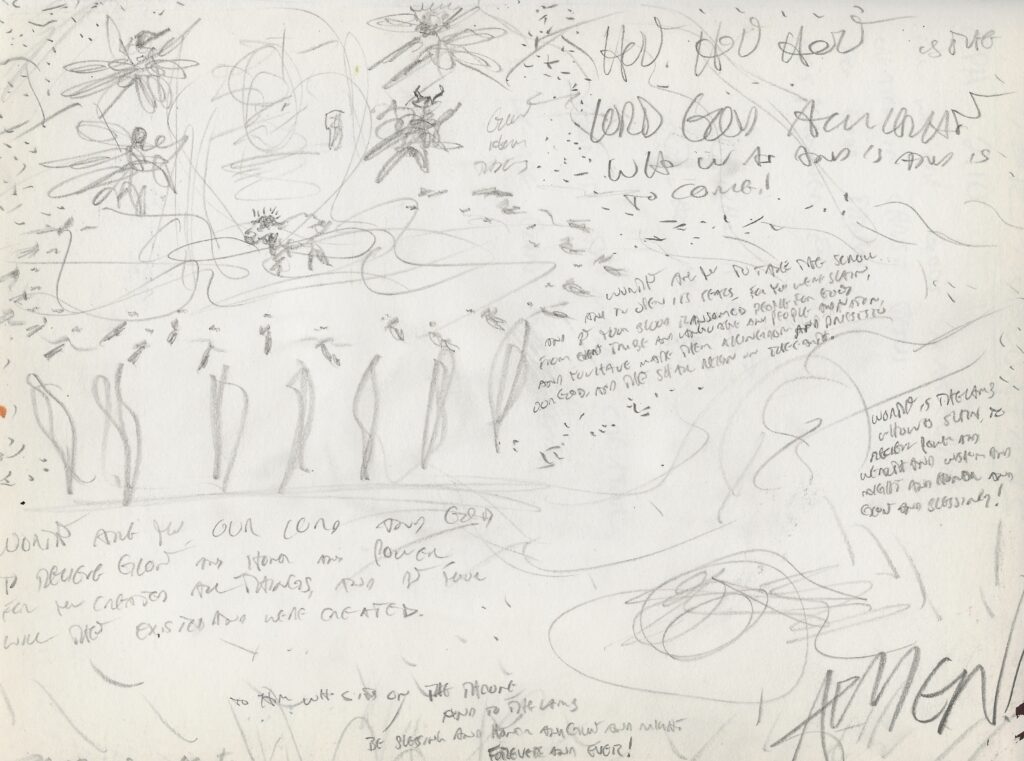 HOLY HOLY HOLY IS THE
LORD GOD ALMIGHTY
WHO WAS AND IS AND IS
TO COME!
GLORY
HONOR
WORTHY ARE YOU TO TAKE THE SCROLL
AND TO OPEN ITS SEALS, FOR YOU WERE SLAIN,
AND BY YOUR BLOOD RANSOMED PEOPLE FOR GOD
FROM EVERY TRIBE AND LANGUAGE AND PEOPLE AND NATION,
AND YOU HAVE MADE THEM A KINGDOM AND PRIESTS TO
OUR GOD, AND THEY SHALL REIGN ON THE EARTH.
WORTHY IS THE LAMB
WHO WAS SLAIN, TO
RECEIVE POWER AND
WEALTH AND WISDOM AND
MIGHT AND HONOR AND
GLORY AND BLESSING!
WORTHY ARE YOU, OUR LORD AND GOD
TO RECEIVE GLORY AND HONOR AND POWER
FOR YOU CREATED ALL THINGS, AND BY YOUR
WILL THEY EXISTED AND WERE CREATED.
TO HIM WHO SITS ON THE THRONE
AND TO THE LAMB
BE BLESSING AND HONOR AND GLORY AND MIGHT
FOREVER AND EVER!
AMEN!